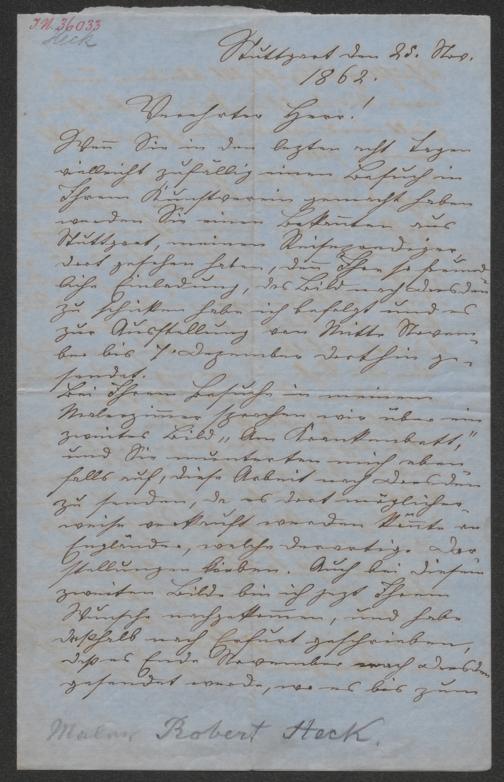 I.N. 36033
Heck
Stuttgart den 25. Nov.
1862.
Verehrter Herr!
Wenn Sie in den lezten acht Tagen
vielleicht zufällig einen Besuch in
Ihrem Kunstverein gemacht haben
werden Sie einen Bekannten aus
Stuttgart, meinen
dort gesehen haben, denn Ihre so freund
liche Einladung, das Bild nach Dresden
zu schicken habe ich befolgt und es
zur Ausstellung von Mitte Novem-
ber bis 7. Dezember dorthin ge-
sendet.
Bei Ihrem Besuche in meinem
Malerzimmer sprachen wir über ein
zweites Bild „Am Krankenbett,"
und Sie munterten mich eben
falls auf, diese Arbeit nach Dresden
zu senden, da es dort möglicher
weise verkauft werden könnte an
Engländer, welche derartige Dar
stellungen lieben. Auch bei diesem
zweiten Bilde bin ich jezt Ihrem
Wunsche nachgekommen, und habe
deßhalb nach Erfurt geschrieben,
daß es Ende November nach Dresden
gesendet werde, wo es bis zum
Maler Robert Heck.